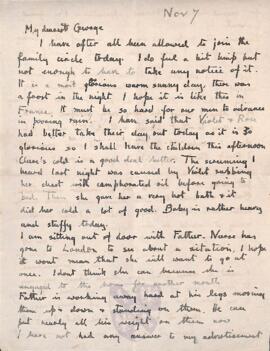 Nov 7
My dearest George
I have after all been allowed to join the
family circle today. I do feel a bit limp but
not enough to have to take any notice of it.
It is a most glorious warm sunny day, there was
a frost in the night. I hope it is like this in
France. It must be so hard for our men to advance
in pouring rain. I have said that Violet & Rose
had better take their day out today as it is so
glorious so I shall leave the children this afternoon
Clare's cold is a good deal better. The screaming I
heard last night was caused by Violet rubbing
her chest with camphorated oil before going to
bed. Then she gave her a very hot bath & it
did her cold a lot of good. Baby is rather heavy
and stuffy today.
I am sitting out of door with Father. Nurse has
gone to London to see about a situation, I hope
it wont mean that she will want to go at
once. I dont think she can because she is
engaged to this house for another month
Father is working away hard at his legs moving
them up & down & standing on them. He can
put nearly all his weight on them now
I have not had any answer to my advertisement